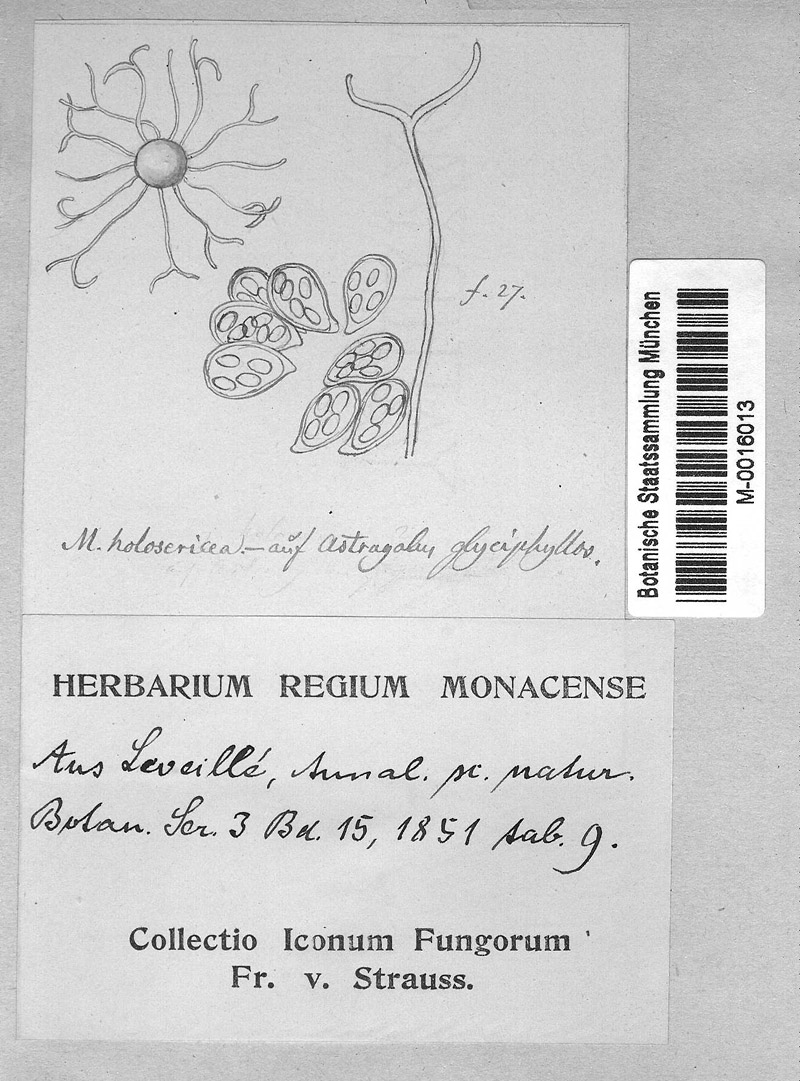 f. 27.
M. holosericea. – auf Astragalus glyciphyllos.
Botanische Staatssammlung München
M-0016013
HERBARIUM REGIUM MONACENSE
Aus Leveillé, Annal. sc. natur.
Botan. Ser. 3 Bd. 15, 1851 tab. 9.
Collectio Iconum Fungorum
Fr. v. Strauss.